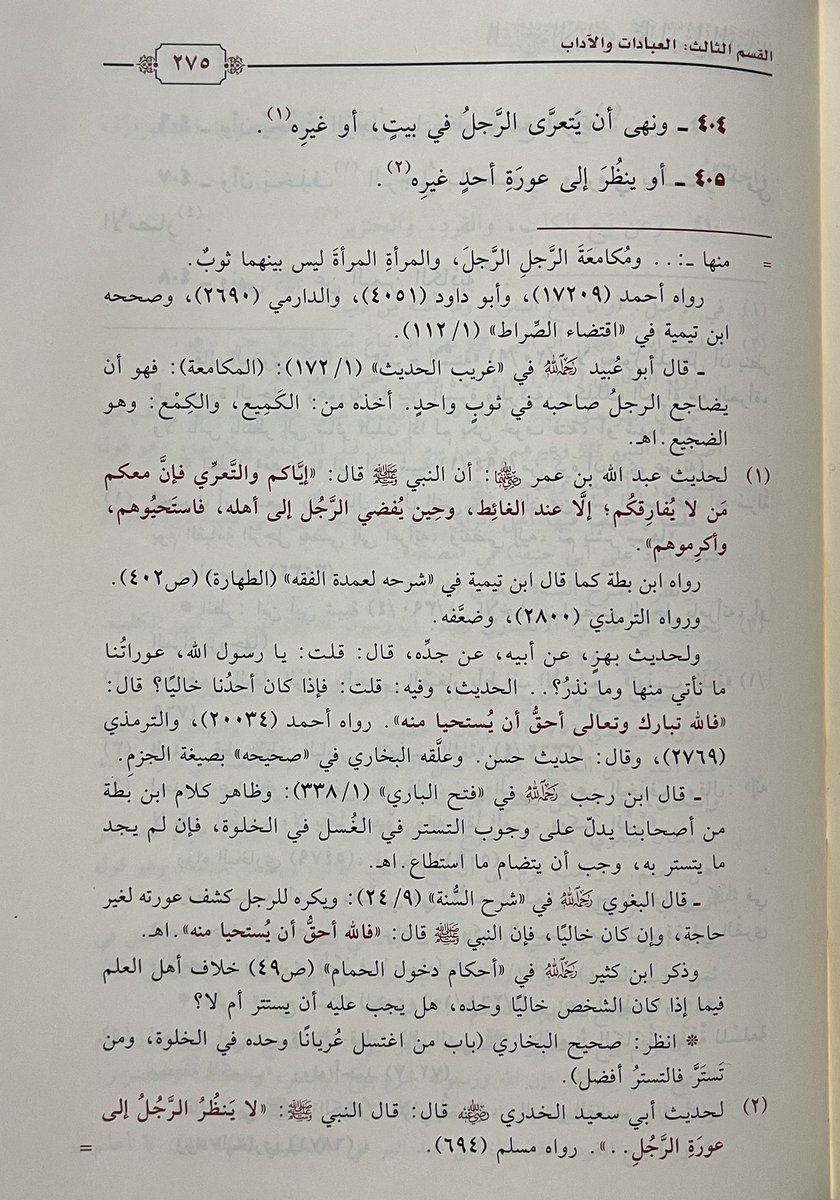 القسم الثالث: العبادات والآداب
٢٧٥
٤٠٤ ـ ونهى أن يَتعرَّى الرَّجلُ في بيتٍ، أو غيرِه(١).
٤٠٥ ـ أو ينظُرَ إلى عورَةِ أحدٍ غيرِه(٢).
= منها ـ:.. ومُكامعَةَ الرَّجلِ الرَّجلَ، والمرأةِ المرأةَ ليس بينهما ثوبٌ.
رواه أحمد (١٧٢٠٩)، وأبو داود (٤٠٥١)، والدارمي (٢٦٩٠)، وصححه
ابن تيمية في «اقتضاء الصِّراط» (١/ ١١٢).
ـ قال أبو عُبيد رَحِمَهُ اللهُ في «غريب الحديث» (١/ ١٧٢): (المكامعة): فهو أن
يضاجع الرجلُ صاحبه في ثوبٍ واحدٍ. أخذه من: الكَمِيع، والكِمْع: وهو
الضجيع.اهـ.
(١) لحديث عبد الله بن عمر رضي الله عنهما: أن النبي ﷺ قال: «إيَّاكم والتَّعرِّي فإنَّ معكم
مَن لا يُفارِقكُم؛ إلَّا عند الغائِط، وحِين يُفضي الرَّجُل إلى أهله، فاستَحيُوهم،
وأكرِموهم».
رواه ابن بطة كما قال ابن تيمية في «شرحه لعمدة الفقه» (الطهارة) (ص٤٠٢).
ورواه الترمذي (٢٨٠٠)، وضعَّفه.
ولحديث بهزٍ، عن أبيه، عن جدِّه، قال: قلت: يا رسول الله، عوراتُنا
ما نأتي منها وما نذرُ؟.. الحديث، وفيه: قلت: فإذا كان أحدُنا خاليًا؟ قال:
«فالله تبارك وتعالى أحقُّ أن يُستحيا منه». رواه أحمد (٢٠٠٣٤)، والترمذي
(٢٧٦٩)، وقال: حديث حسن. وعلَّقه البخاري في «صحيحه» بصيغة الجزمِ.
ـ قال ابن رجب رَحِمَهُ اللهُ في «فتح الباري» (١/ ٣٣٨): وظاهر كلام ابن بطة
من أصحابنا يدلّ على وجوب التستر في الغُسل في الخلوة، فإن لم يجد
ما يتستر به، وجب أن يتضام ما استطاع.اهـ.
ـ قال البغوي رَحِمَهُ اللهُ في «شرح السُّنة» (٩/ ٢٤): ويكره للرجل كشف عورته لغير
حاجة، وإن كان خاليًا، فإن النبي ﷺ قال: «فالله أحقُّ أن يُستحيا منه».اهـ.
وذكر ابن كثير رَحِمَهُ اللهُ في «أحكام دخول الحمام» (ص٤٩) خلاف أهل العلم
فيما إذا كان الشخص خاليًا وحده، هل يجب عليه أن يستتر أم لا؟
* انظر: صحيح البخاري (باب من اغتسل عُريانًا وحده في الخلوة، ومن
تَستَرَّ فالتسترُ أفضل).
(٢) لحديث أبي سعيد الخدري رضي الله عنه قال: قال النبي ﷺ: «لا يَنظُرُ الرَّجُلُ إلى
عورَةِ الرَّجُلِ..». رواه مسلم (٦٩٤). =